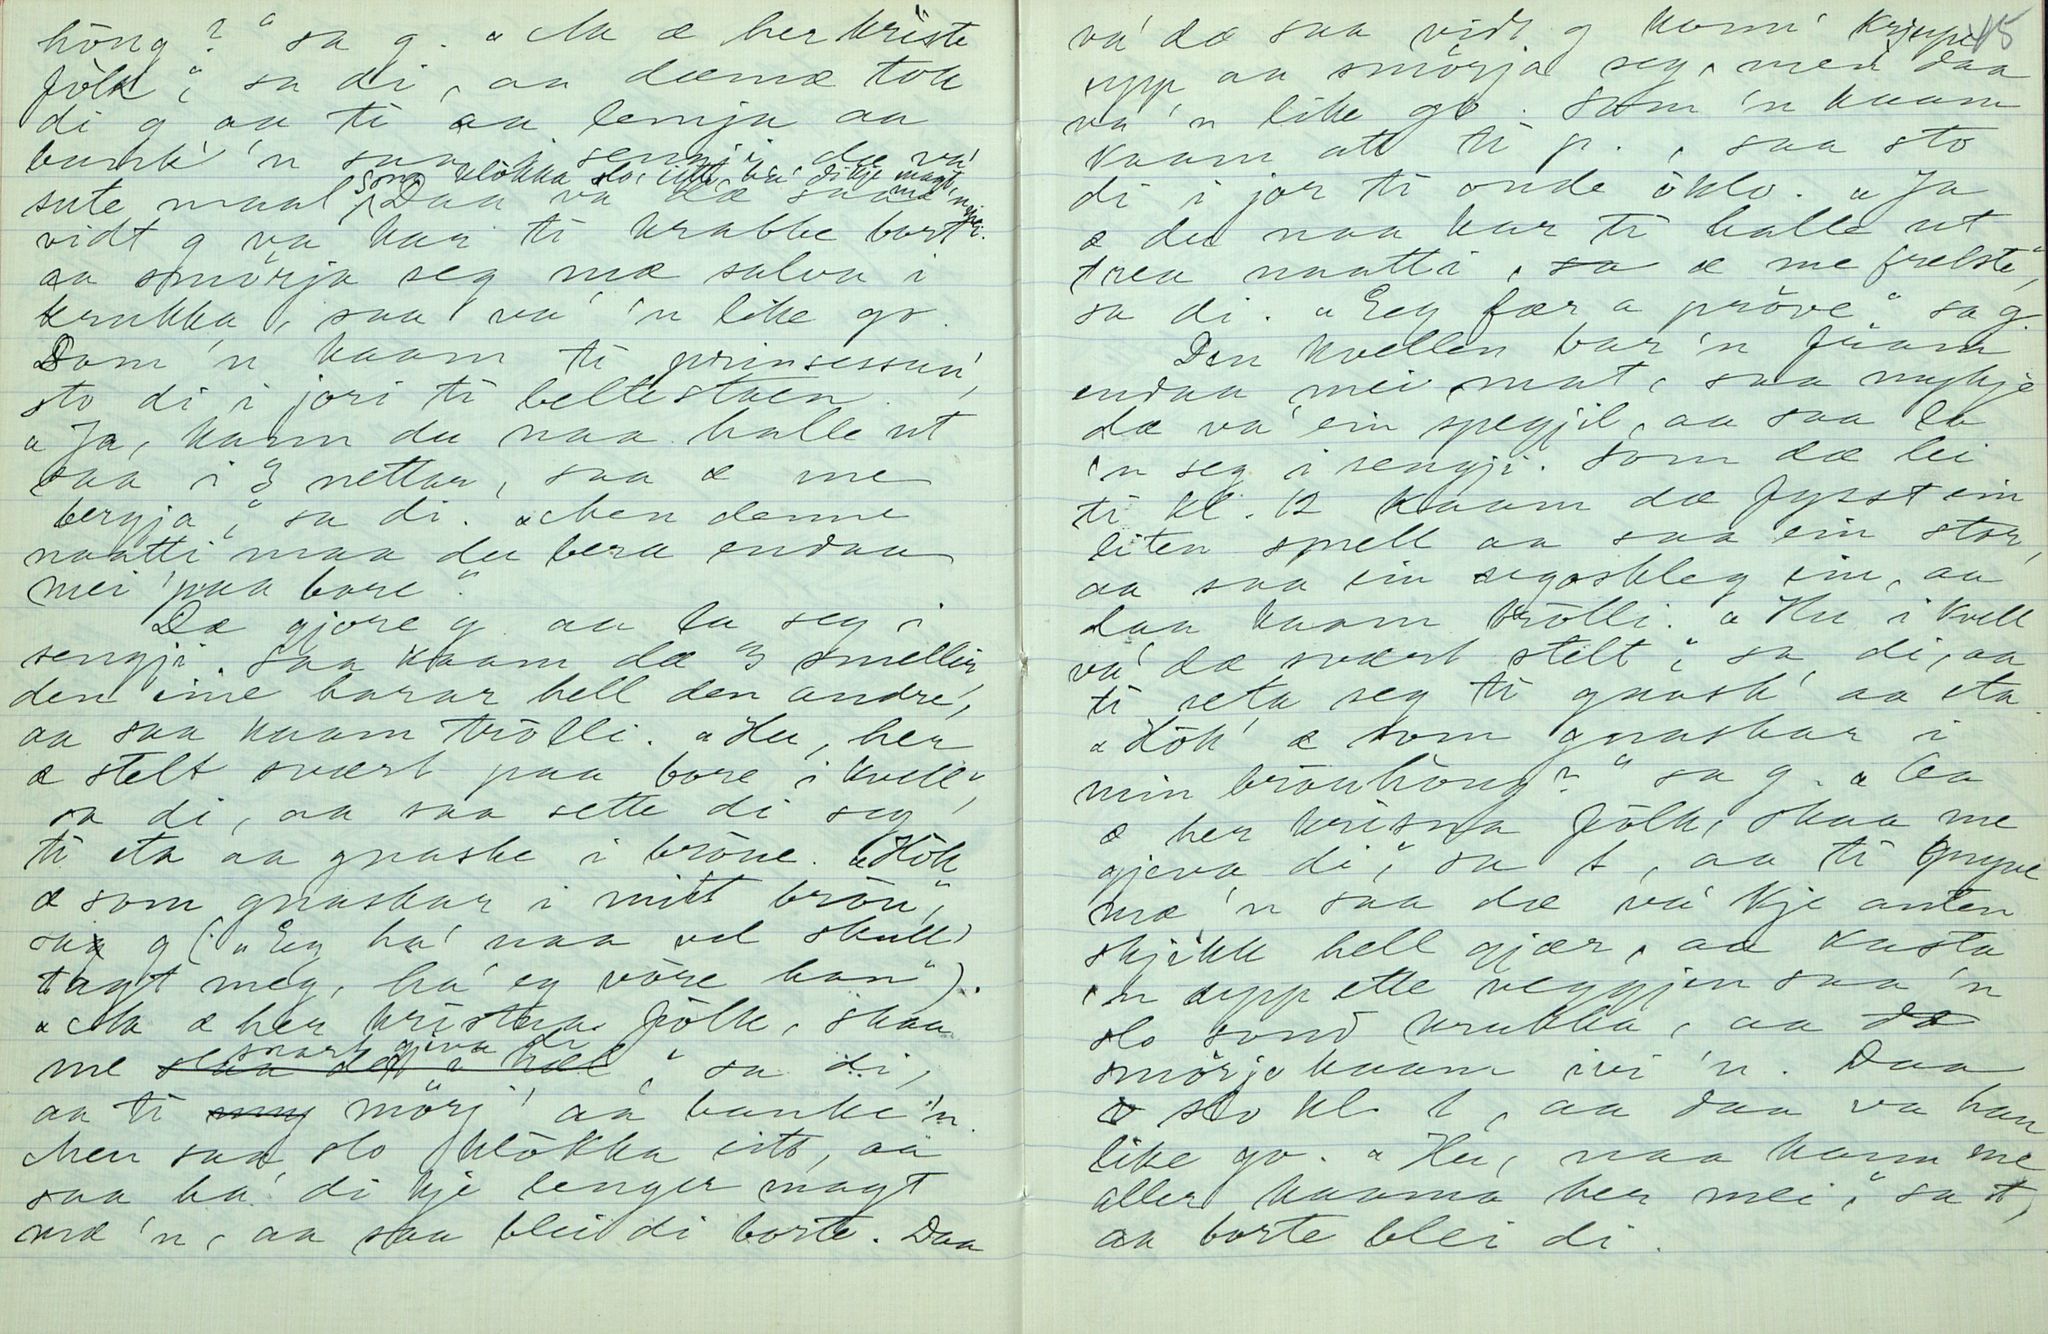 höng?" sa g. "Aa æ her kriste
fölk", sa di, aa dæmæ tok
di g aa ti aa lemja aa
bank' 'n saa
sute maal, Som klökka slo itt, ha' di kje magt
mæ 'n mei.
Daa va' dæ saa
vidt g va' kar ti krabbe bort
aa smörja seg mæ salva i
krukka, saa va' 'n like go.
Som 'n kaam ti prinsessun',
sto di i jori ti beltestaen.
"Ja, kann du naa halle ut
saa i 3 nettar, saa æ me
bergja", sa di. "Men denne
naatti maa du bera endaa
mei paa bore".
Dæ gjore g aa la seg i
sengji. Saa kaam dæ 3 smellir,
den eine harar hell den andre,
aa saa kaam trölli. "Hu, her
æ stelt svært paa bore i kvell"
sa di, aa saa sette di seg
ti eta aa gnaske i bröne. "Hök
æ som gnaskar i mitt brön",
sa g ("Eg ha' naa vel skull'
tagt meg, ha' eg vöre han").
"Aa æ her kristna fölk, skaa
me snart gjeva di", sa di,
aa ti mörj' aa banke 'n.
Men saa slo klökka eitt, aa
saa ha' di kje lenger magt
mæ 'n, aa saa blei di borte. Daa
va' dæ saa vidt g kom' krjupe 15
upp aa smörja seg, men daa
va 'n like go. Som 'n kaam
kaam att ti p., saa sto
di i jor ti onde öklo. "Ja
æ du naa kar ti halle ut
trea naatti, sa æ me frelste",
sa di. "Eg fær a pröve" sa g.
Den kvellen bar 'n fraam
endaa mei mat, saa mykje
dæ va' ein spegjil, aa saa la
'n seg i sengji. Som dæ lei
ti kl. 12 kaam dæ fysst ein
liten smell aa saa ein stor,
aa saa ein segoskleg ein, aa
daa kaam trölli. "Hu i kvell
va' dæ svært stelt", sa di, aa
ti seta seg ti gnask' aa eta.
"Hök' æ som gnaskar i
min brönhöng?" sa g. "Aa
æ her krisna fölk, skaa me
gjeva di", sa t, aa ti gryve
mæ 'n saa dæ va' kje anten
skjikk hell gjær, aa kasta
'n upp ette veggjen saa 'n
slo sond krukka, aa dæ
smörja kaam ivi 'n. Daa
slo kl. 1, aa daa va han
like go. "Hu, naa kann me
aller kaama her mei", sa t,
aa borte blei di.